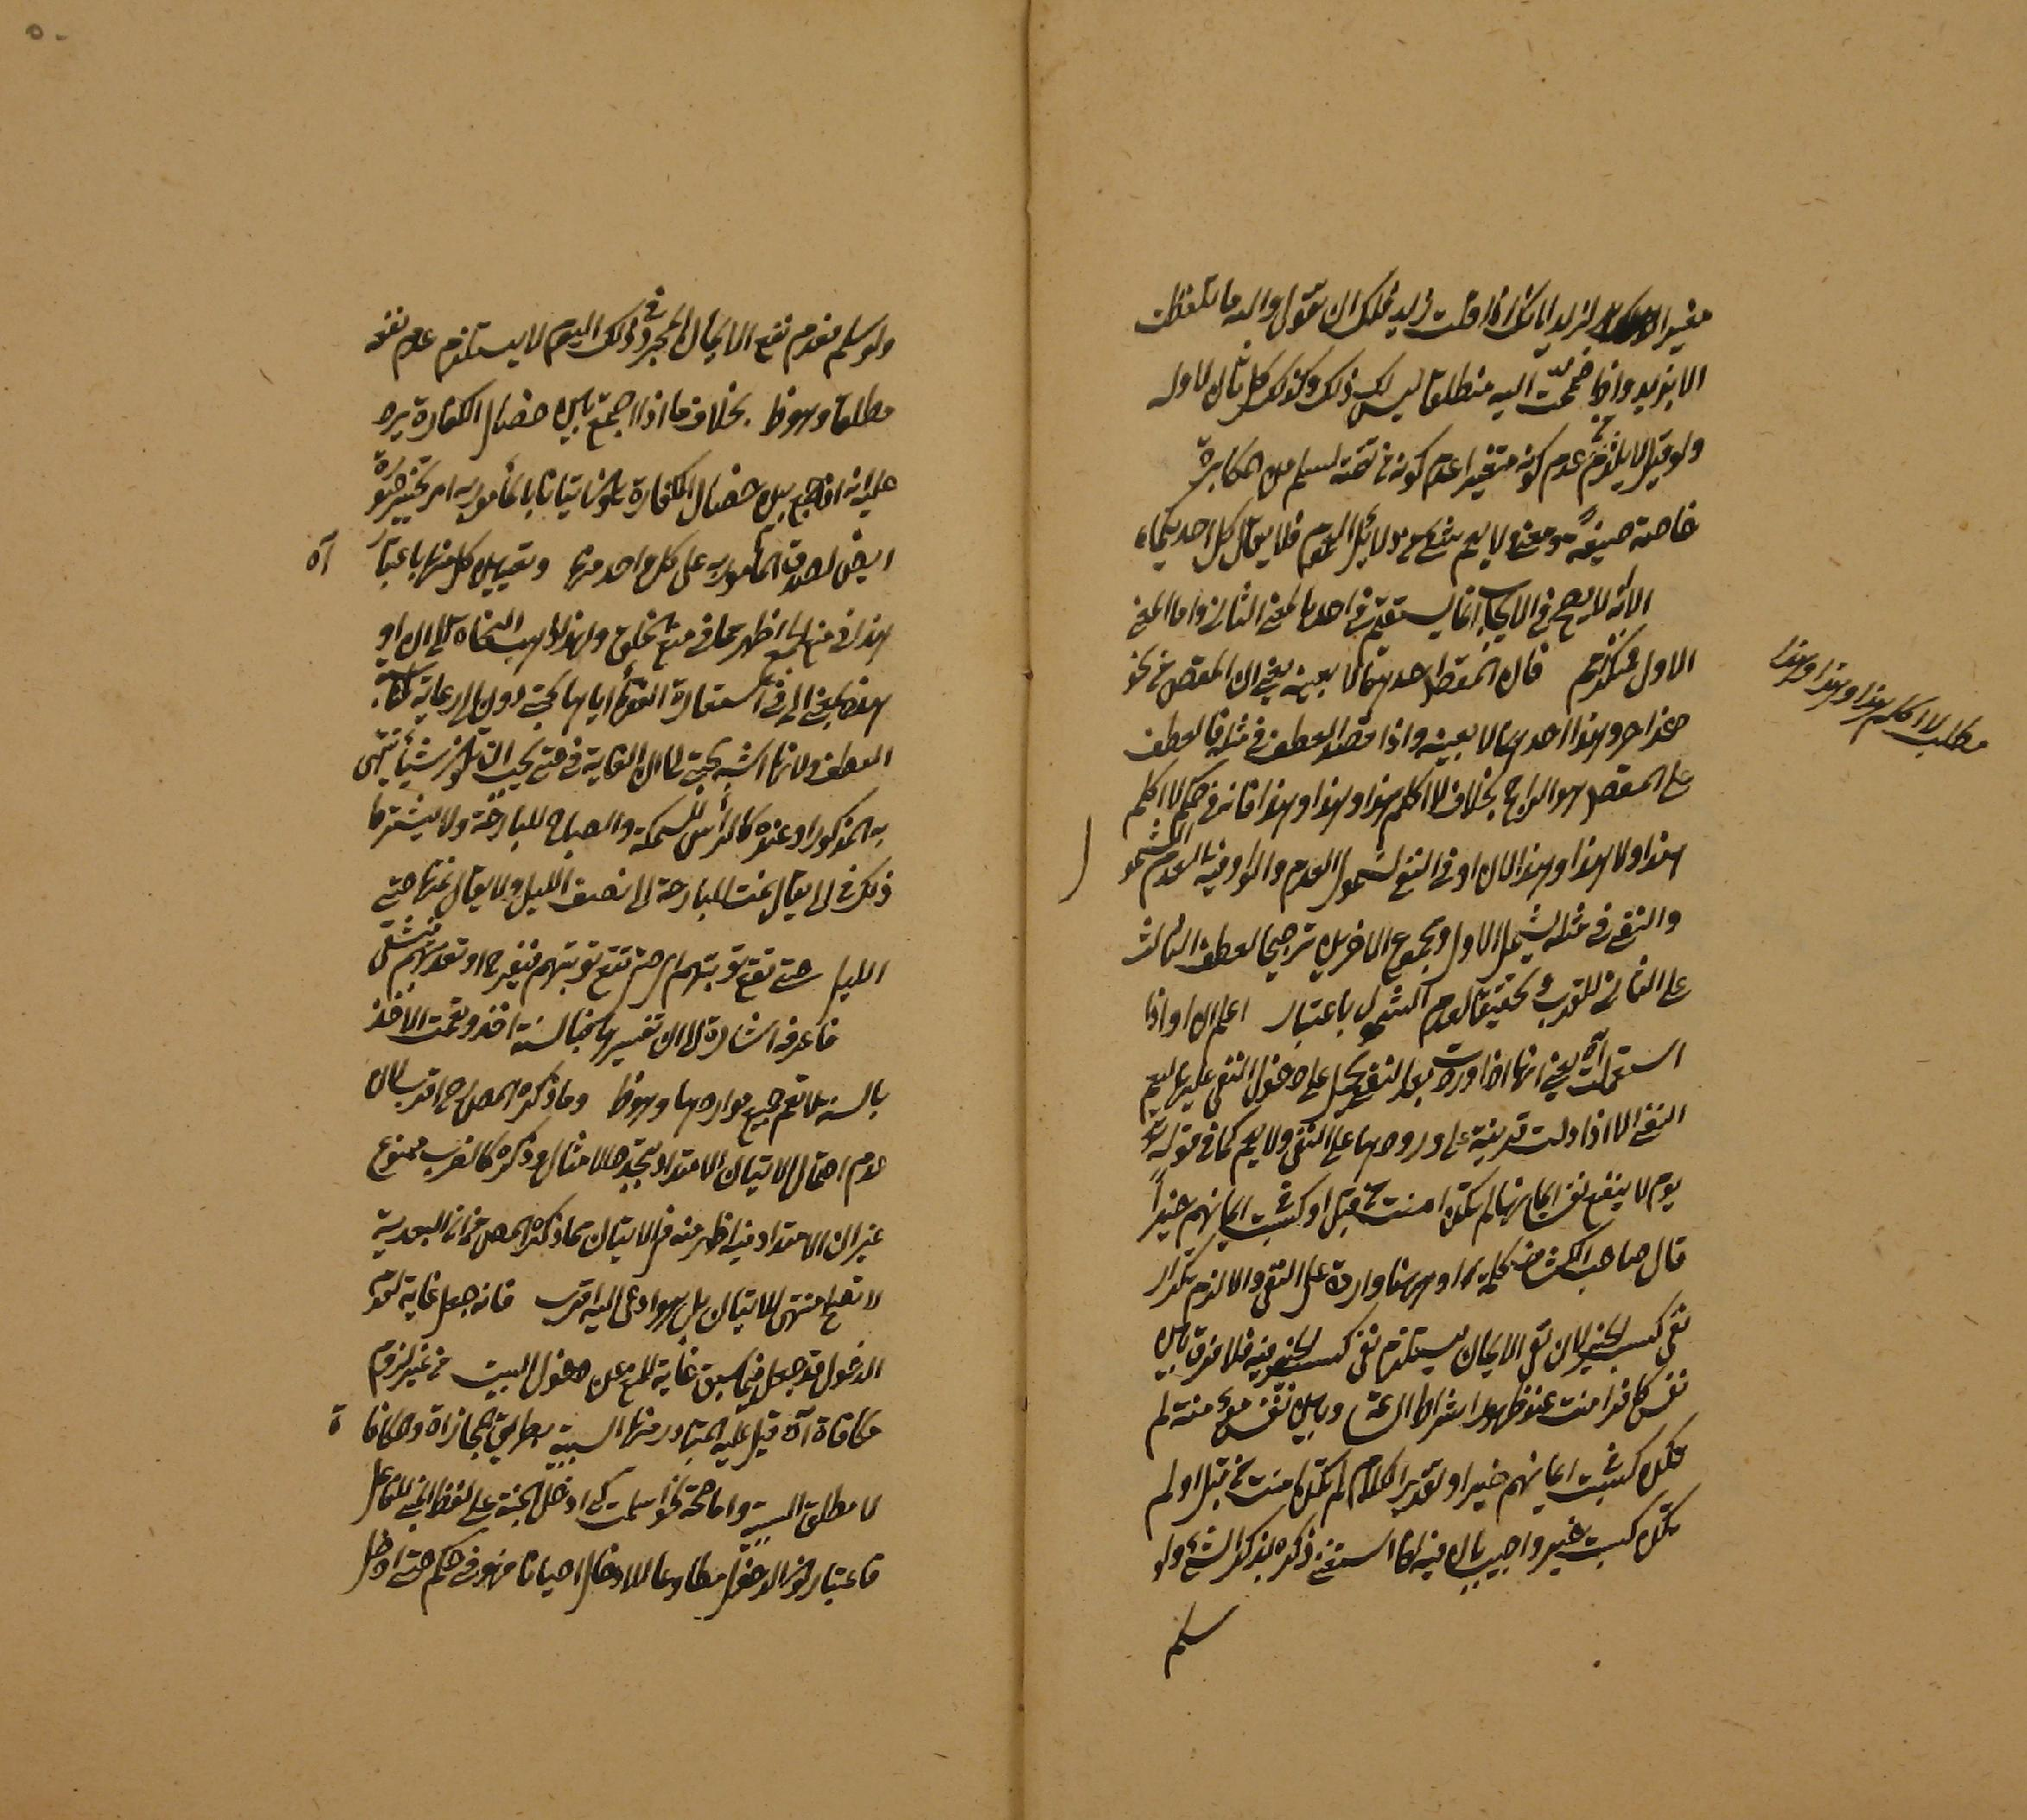 مغير الاول لزيد لانك اذا قلت زيد فلك ان تقول والله ما تلفظت
الا بزيد واذا ضممت اليه منطلقا ليس لك ذلك وكذلك كل ثان لاوله
ولو قيل لا يلزم من عدم كونه متغيرا عدم كونه في تتمة لسلم من المكابرة
خاصة صيغة ومعنى لا يعم شيء من دلائل العموم فلا يقال كل احد
الا انه لا يصح في الايجاب انما يستقيم في احد بالمعنى الثاني واما المعنى
الاول فمنكر ثم قال المقصود احدهما لا بعينه يعني ان المقصود من نحو
هذا حر وهذا احدهما لا بعينه واذا قصد العطف في مثله فالعطف
على المقصود هو الراجح بخلاف لا اكلم هذا او هذا وهذا فانه في حكم لا اكلم
هذا ولا هذا وهذا لان او في النفي لشمول العدم والواو فيه لعدم الشمول
والنفي في مثله يشمل الاول ومجموع الاخرين ترجيحا لعطف الثالث
على الثاني للقرب وتحقيقا لعدم الشمول باعتبار اعلم ان او اذا
استعملت آه يعني انها اذا وردت بعد النفي يحمل على دخول النفي عليها ليعم
النفي الا اذا دلت قرينة على ورودها على النفي ولا يعم كما في قوله تعالى
يوم لا ينفع نفسا ايمانها لم تكن امنت من قبل او كسبت في ايمانهم خيرا
قال صاحب الكشف كلمة او ههنا واردة على النفي والا لزم تكرار
نفي كسب الخير لان نفي الايمان يستلزم نفي كسب الخير فيه فلا فرق بين
نفس كافرة امنت عند ظهور اشراط الساعة وبين نفس مؤمنة لم
تكن كسبت في ايمانهم خيرا وتقدير الكلام لم تكن امنت من قبل او لم
تكن كسبت خيرا واجيب بان فيه لما استغنى ذكره بذكر الشيء ولو
سلم
مطلب لا اكلم هذا او هذا وهذا
ولو سلم فعدم نفع الايمان المجرد في ذلك اليوم لا يستلزم عدم نفعه
مطلقا وهو ظ بخلاف ما اذا جمع بين خصال الكفارة يرد
عليه انه اذا جمع بين خصال الكفارة يكون اتيانا بالمأمور به امر تخيير ضرورة
ايض لصدق المأمور به على كل واحد منها وتعيين كل منها باعتبار آه
هذا في منع الجمع اظهر مما في منع الخلو ولهذا ذهب النحاة الى ان او
هذه بمعنى الى في استعارة القوم اياها لحتى دون الى رعاية لمناسبة
العطف ولانها اشبه بحتى لان الغاية في حتى يجب ان تكون شيأ ينتهي
به المذكور او عنده كالرأس للسمكة والصباح للبارحة ولا يشترط
ذلك في الى يقال نمت البارحة الى نصف الليل ولا يقال نمتها حتى
الليل حتى تقع توبتهم اى حتى تقع توبتهم فتفرح او تعذبهم فتشقى
فاعرفه اشارة الى ان تفسيرها
بالسنة لا تعم جميع مواردها وهو ظ وما ذكره المص اقرب لان
عدم احتمال الاتيان الامتداد بتجدد الامثال وذكره كالضرب ممنوع
غير ان الامتداد فيه اظهر منه في الاتيان مما ذكره المص من ان البعدية
لا تصلح منتهى للاتيان بل هو ادعى اليه اقرب فانه جعل غاية لعدم
الدخول قد جعل فيما سبق غاية للمنع عن دخول البيت من غير لزوم
مكافاة آه قيل عليه المتبادر منها السببية بطريق المجازاة والمكافاة
لا مطلق السببية واما صحة نحو اسلمت كي ادخل الجنة على لفظ المبني للفاعل
فاعتبار كون الدخول مطاوعا للادخال احيانا فهو في حكم حتى ادخل